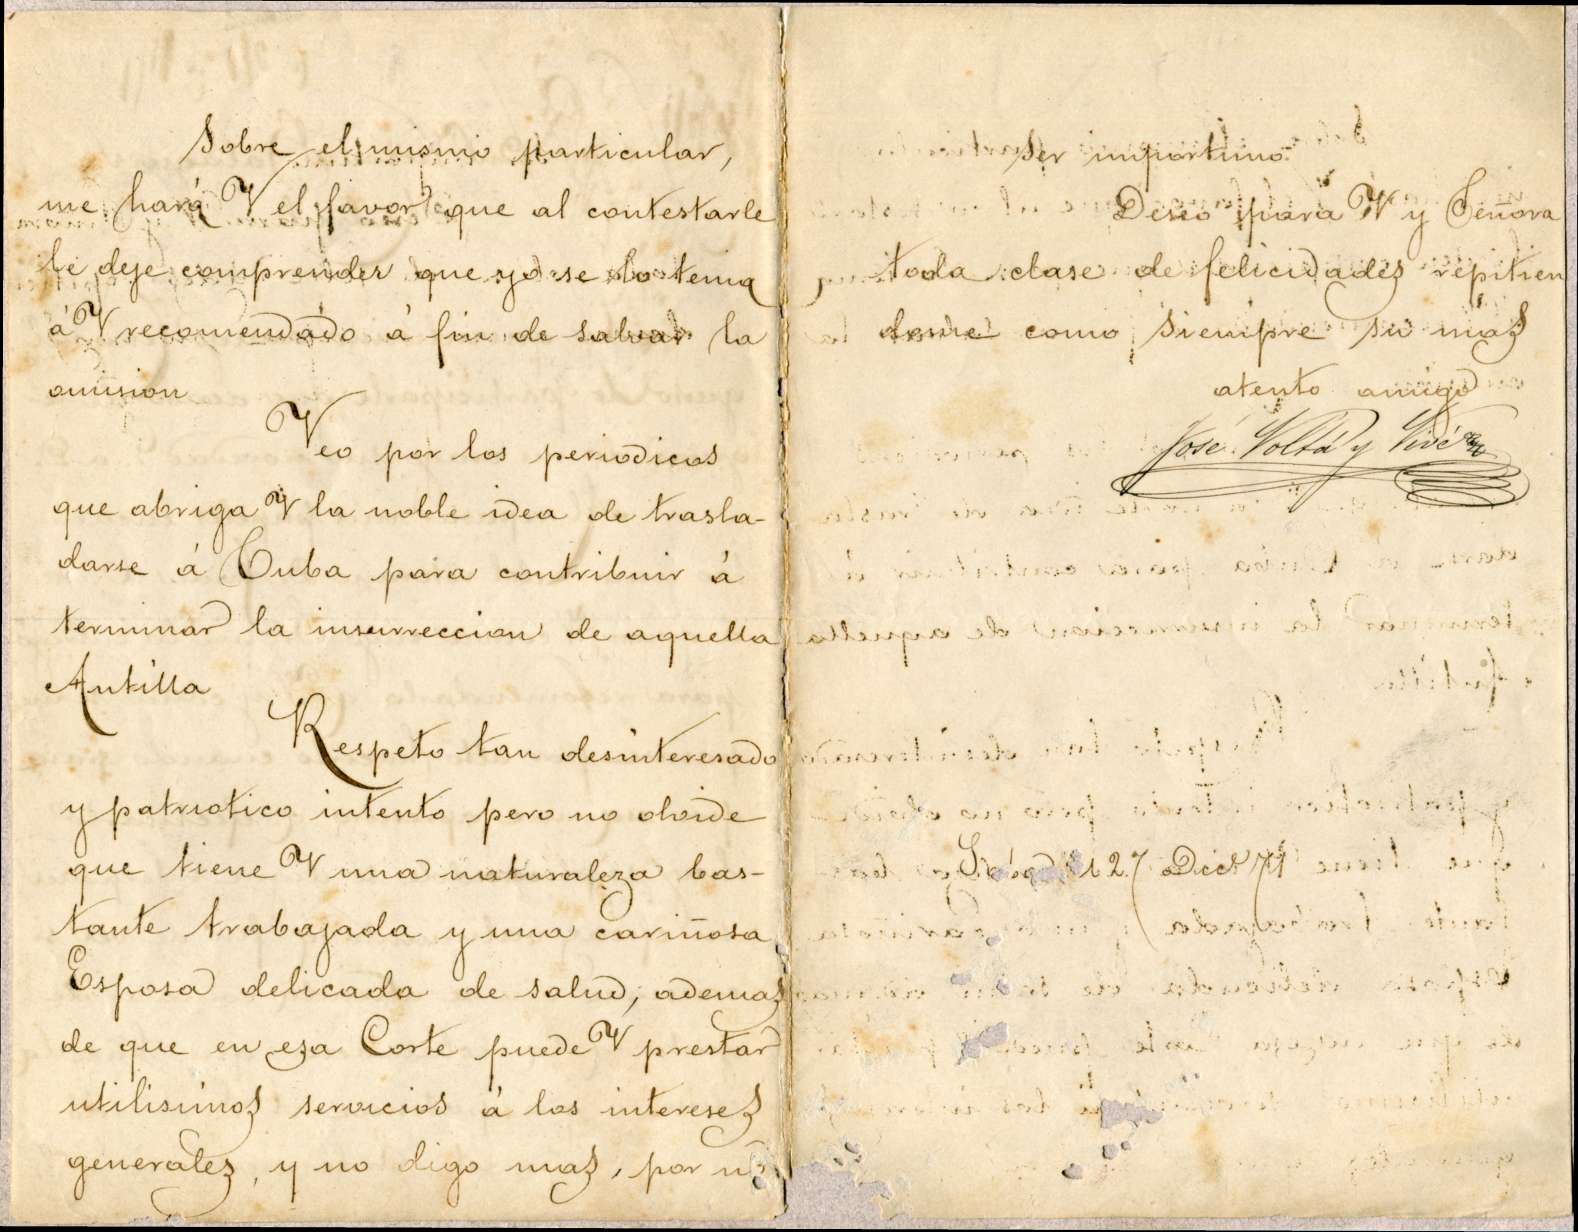 Sobre el mismo particular,
me hará V el favor que al contestarle
le deje comprender que yo se lo tenia
á V recomendádo á fin de salvar la
omision
Veo por los periodicos
que abriga V la noble idea de trasla-
darse á Cuba para contribuir á
terminar la insurreccion de aquella
Antilla
Respeto tan desinteresado
y patriotico intento pero no olvide
que tiene V una naturaleza bas-
tante trabajada y una cariñosa
Esposa delicada de salud, ademas
de que en esa Corte puede V prestar
utilisimos servicios á los intereses
generales, y no digo mas, por no
ser importuno.
Deseo para V y Señora
toda clase de felicidades repitien
dome como siempre su mas
atento amigo
José Voltá y Vivé
27 Dice 71